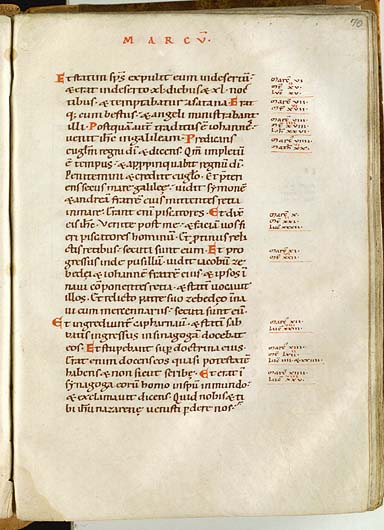 70
MARCV̄.
Et statim sp̄s expulit eum in desertū·
& erat in deserto xl· diebus & xl· noc
tibus· & temptabatur a satana· Erat
q; cum bestiis· & angeli ministrabant
illi· Postquā aut̄ traditus ē iohannes·
uenit ih̄c in galileam· Predicans
euḡlm regni dī· & dicens· Qm̄ impletū
ē tempus· & appropinquabit regnū dī·
Penitemini & credite euḡlo· Et preti
ens secus mare galileę· uidit symonē
& andreā fratrē eius mittentes retia
in mare· Erant enī piscatores· Et dix̄
eis ih̄c· Venite post me· & faciā uos fi
eri piscatores hominū· Et protinus reli
ctis retibus· secuti sunt eum· Et pro
gressus inde pusillū· uidit iacobū ze
bedęi· & iohannē fratrē eius· & ipsos in
naui cōponentes retia· & statī uocauit
illos· Et relicto patre suo zebedęo in na
ui cum mercennariis· secuti sunt eū·
Et ingrediunt̄ capharnaū· & statī sab
batis ingressus in sinagogā docebat
eos· Et stupebant sup doctrina eius·
Erat enim docens eos quasi potestatē
habens· & non sicut scribę· Et erat ī
synagoga eorū homo in spū inmundo·
& exclamauit dicens· Quid nobis & ti
bi ih̄u nazarene· uenisti pdere nos·
Marc̄ vi·
Mt̄ xv·
Luc̄ xv·
Marc̄ vii·
Marc̄ viii·
Marc̄ x·
Mt̄ xxi·
Marc̄ xi·
Mt̄ xxii·
Marc̄ xii·
Marc̄ xiii·
Marc̄ xiiii·
Luc̄ xxv·